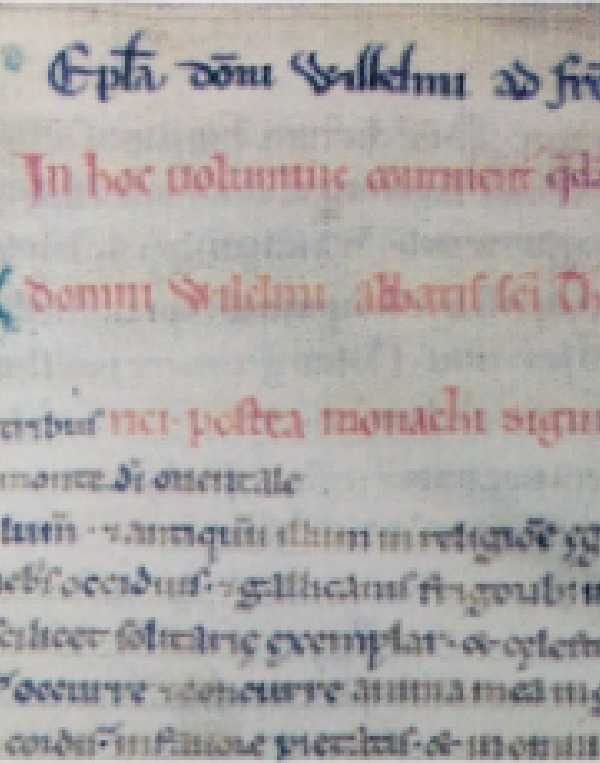 Epła dōni Willelmi ad frē
In hoc uolumine continent q̄dā
domni Willelmi abbatis sci Th
tribus rici postea monachi signi
monte di orientale
lum̄ · antiquū illum in religiōē
occiduis · gallicanis frigorib
scilicet solitarię exemplar · & cęlest
occurre concurre anima mea
cordis in feruore pietatis · & in omni